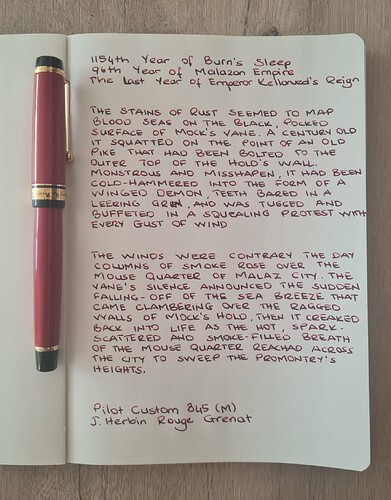 1154th Year of Burn's Sleep
96th Year of Malazan Empire
The Last Year of Emperor Kellanved's Reign
THE STAINS OF RUST SEEMED TO MAP
BLOOD SEAS ON THE BLACK, POCKED
SURFACE OF MOCK'S VANE. A CENTURY OLD
IT SQUATTED ON THE POINT OF AN OLD
PIKE THAT HAD BEEN BOLTED TO THE
OUTER TOP OF THE HOLD'S WALL.
MONSTROUS AND MISSHAPEN, IT HAD BEEN
COLD-HAMMERED INTO THE FORM OF A
WINGED DEMON, TEETH BARED IN A
LEERING GRIN, AND WAS TUGGED AND
BUFFETED IN A SQUEALING PROTEST WITH
EVERY GUST OF WIND
THE WINDS WERE CONTRARY THE DAY
COLUMNS OF SMOKE ROSE OVER THE
MOUSE QUARTER OF MALAZ CITY. THE
VANE'S SILENCE ANNOUNCED THE SUDDEN
FALLING-OFF OF THE SEA BREEZE THAT
CAME CLAMBERING OVER THE RAGGED
WALLS OF MOCK'S HOLD, THEN IT CREAKED
BACK INTO LIFE AS THE HOT, SPARK-
SCATTERED AND SMOKE-FILLED BREATH
OF THE MOUSE QUARTER REACHAD ACROSS
THE CITY TO SWEEP THE PROMONTRY'S
HEIGHTS.
Pilot Custom 845 (M)
J. Herbin Rouge Grenat